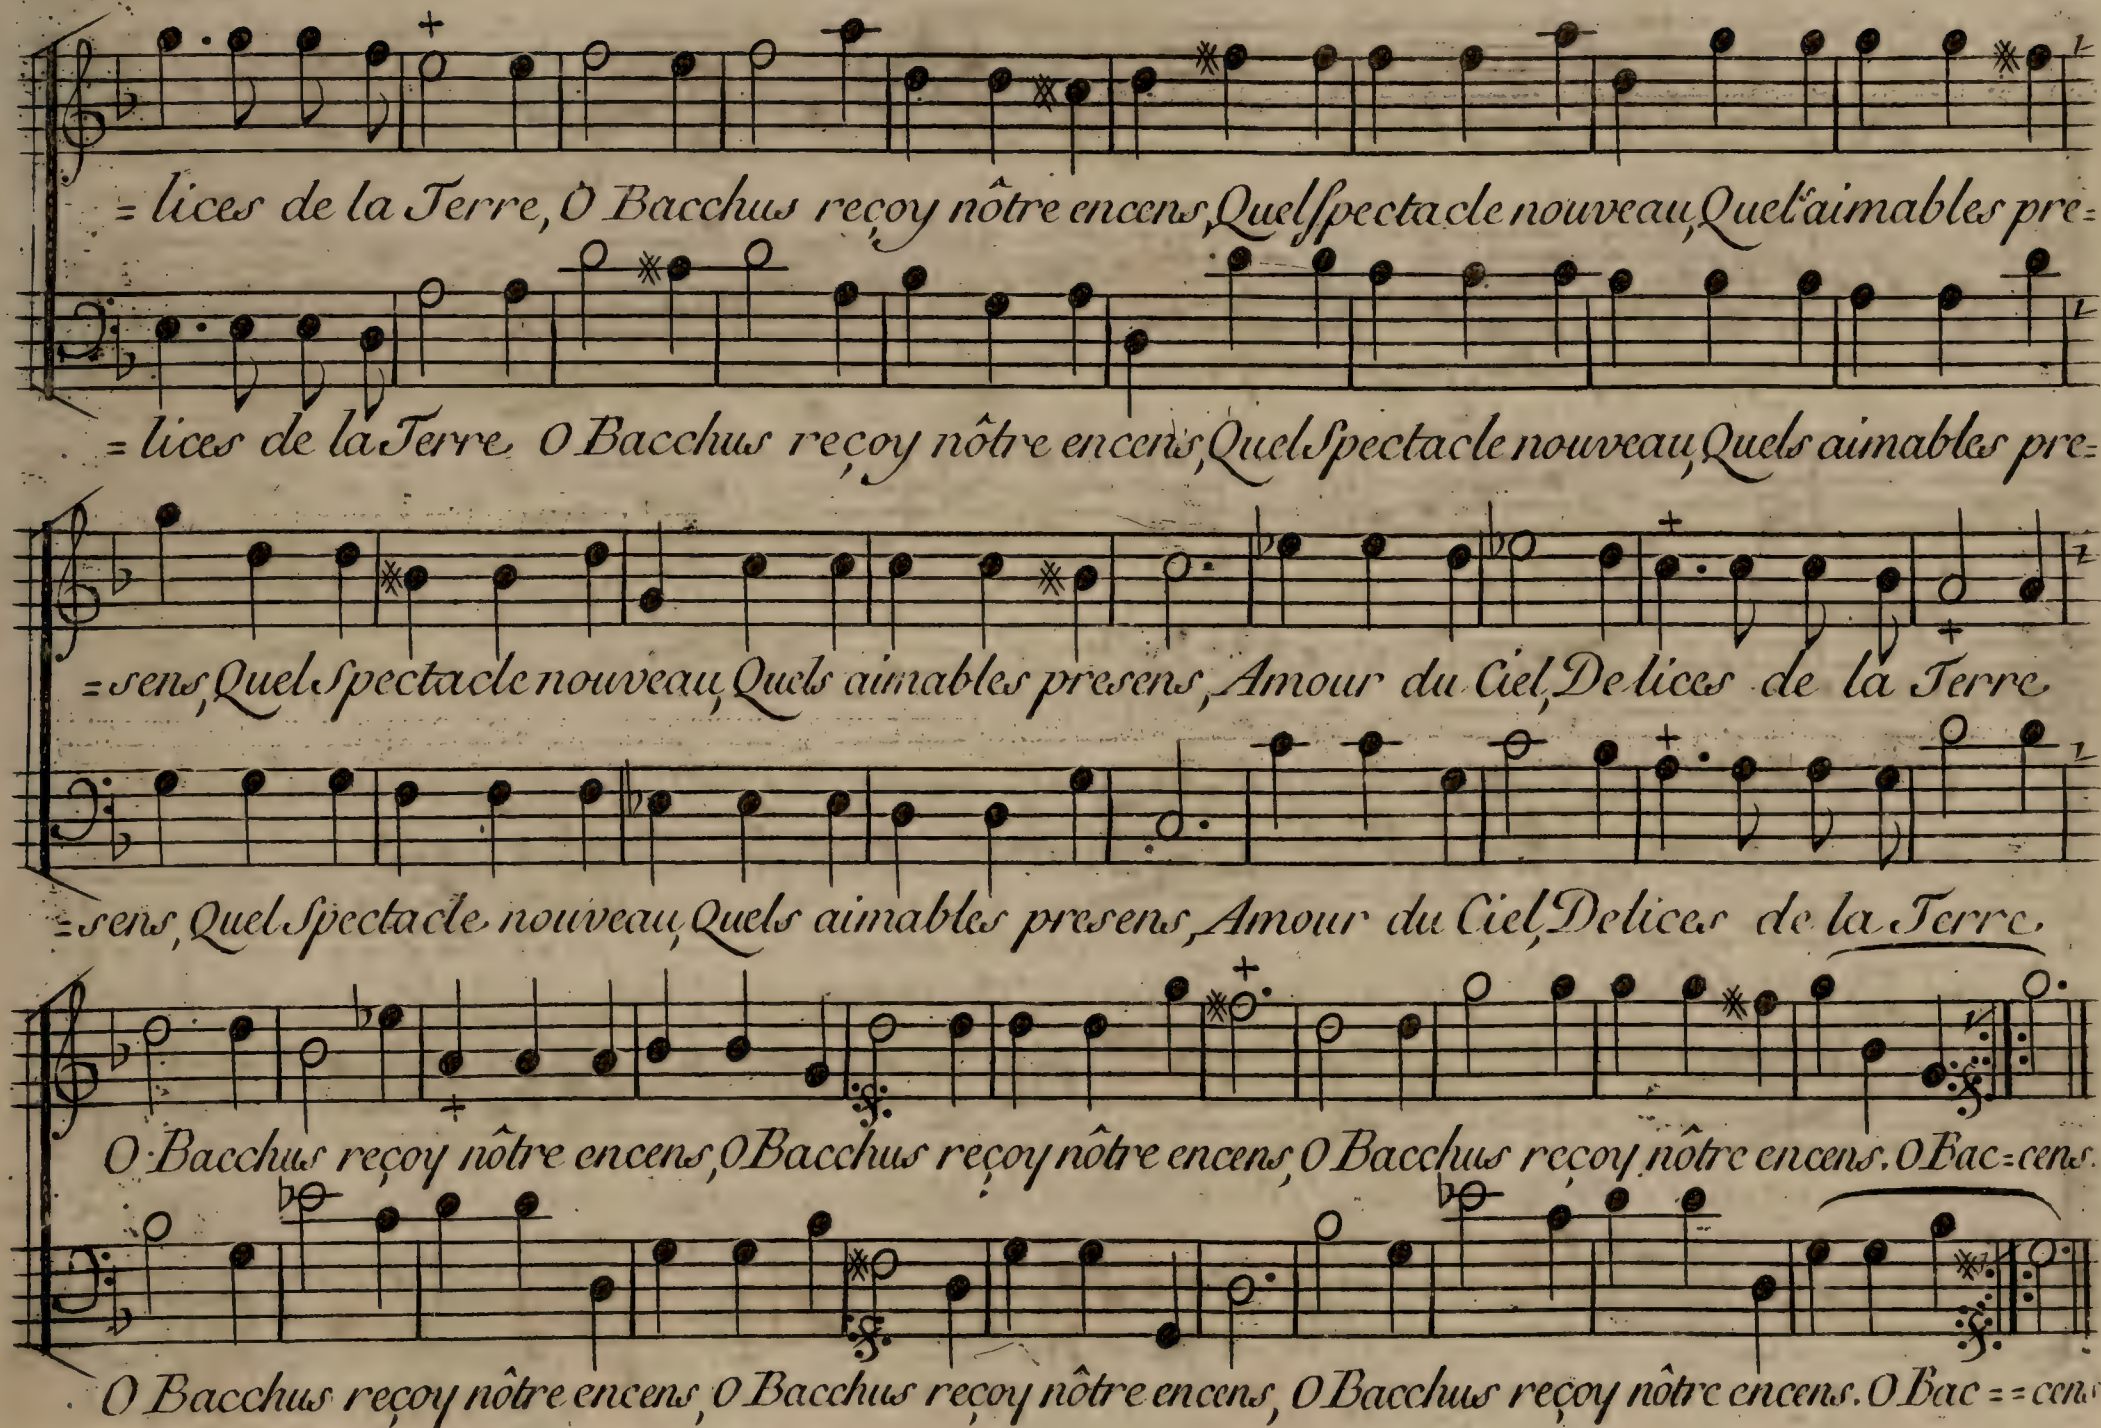 =lices de la Terre, O Bacchus reçoy nôtre encens, Quel Spectacle nouveau, Quels aimables pre=
=lices de la Terre O Bacchus reçoy nôtre encens, Quel Spectacle nouveau, Quels aimables pre=
=sens, Quel Spectacle nouveau, Quels aimables presens, Amour du Ciel, Delices de la Terre
=sens, Quel Spectacle nouveau, Quels aimables presens, Amour du Ciel, Delices de la Terre
O Bacchus reçoy nôtre encens, O Bacchus reçoy nôtre encens, O Bacchus reçoy nôtre encens. O Bac=cens.
O Bacchus reçoy nôtre encens, O Bacchus reçoy nôtre encens, O Bacchus reçoy nôtre encens. O Bac==cens